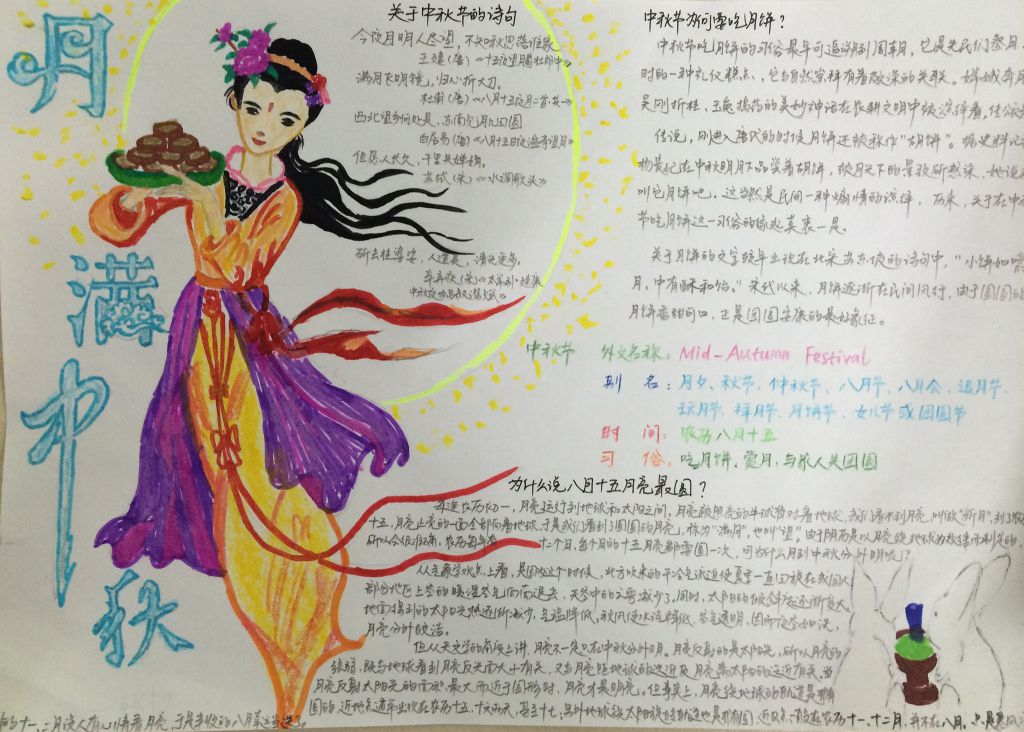 月满中秋
关于中秋节的诗句
今夜月明人尽望，不知秋思落谁家
王建（唐）《十五夜望月寄杜郎中》
满月飞明镜，归心折大刀。
杜甫（唐）《八月十五夜月二首·其一》
西北望乡何处是，东南见月几回圆
白居易（唐）《八月十五日夜湓亭望月》
但愿人长久，千里共婵娟。
苏轼（宋）《水调歌头》
斫去桂婆娑，人道是，清光更多。
辛弃疾（宋）《太常引·建康
中秋夜为吕叔潜赋》
中秋节为何要吃月饼？
中秋节吃月饼的习俗最早可追溯到周朝，它是先民们祭月
时的一种礼仪糕点，它与自然崇拜有着极深的关联。嫦娥奔月
吴刚折桂，玉兔捣药的美妙神话在农耕文明中被演绎着，
传说，刚进入唐代的时候月饼还被称作“胡饼”。据史料记
杨贵妃在中秋明月下品尝着胡饼，被月光下的景致所感染，她说
叫它月饼吧，这当然是民间一种煽情的演绎，后来，关于在中
节吃月饼这一习俗的缘起莫衷一是。
关于月饼的文字较早出现在北宋苏东坡的诗句中，“小饼如嚼
月，中有酥和饴。”宋代以来，月饼逐渐在民间风行，由于圆圆的
月饼香甜可口，正是团圆安康的最好象征。
中秋节 外文名称：Mid-Autumn Festival
别 名：月夕、秋节、仲秋节、八月节、八月会、追月节、
玩月节、拜月节、月饼节、女儿节或团圆节
时 间：农历八月十五
习 俗：吃月饼、赏月、与家人共团圆
为什么说八月十五月亮最圆？
每逢农历初一，月亮运行到地球和太阳之间，月亮被照亮的半球背对着地球，我们看不到月亮，叫做“新月”，到了农历
十五，月亮上亮的一面全部向着地球，于是我们看到了圆圆的月亮，称为“满月”，也叫“望”。由于阴历是以月亮绕地球为数据而制定的，
所以会很准确，农历每年有 十二个月，每个月的十五月亮都要圆一次，可为什么月到中秋分外明呢？
从气象学观点上看，是因为这个时候，北方吹来的干冷气流迫使夏季一直回旋在我国大
部分地区上空的暖湿空气向南退去，天空中的云雾减少了，同时，太阳的倾斜度逐渐变大，
地面得到的太阳光热逐渐减少，气温降低，秋风使水汽降低，空气透明，因而夜空如洗，
月亮分外皎洁。
但从天文学的角度上讲，月亮不一定只在中秋分外明。月亮反射的是太阳光，所以月亮的
强弱，既与地球看到月亮反光面大小有关，又与月亮距地球的远近及月亮离太阳的远近有关，当
月亮反射太阳光的面积最大而近于圆形时，月亮才最明亮。但事实上，月亮绕地球的轨道是椭
圆的，近地点通常出现在农历十五、十六两天，甚至十七；另外地球绕太阳旋转的轨道也是椭圆，近日点一般在农历十一、十二月，并不在八月。只是
的十一、二月没人有心情看月亮，于是丰收的八月